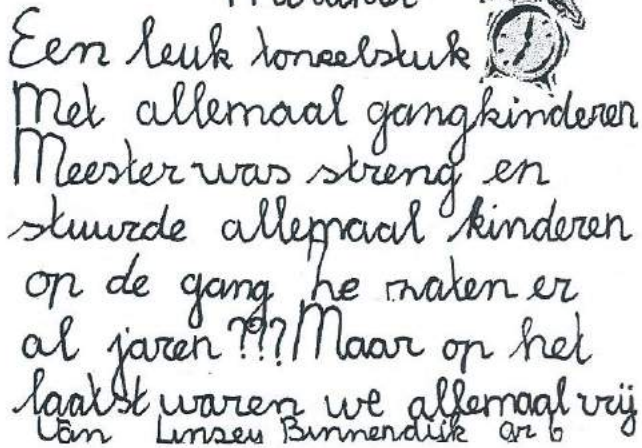 Een leuk toneelstuk
Met allemaal gangkinderen
Meester was streng en
stuurde allemaal kinderen
op de gang he zaten er
al jaren??? Maar op het
laatst waren we allemaal vrij
Van Linsey Binnendijk gr 6